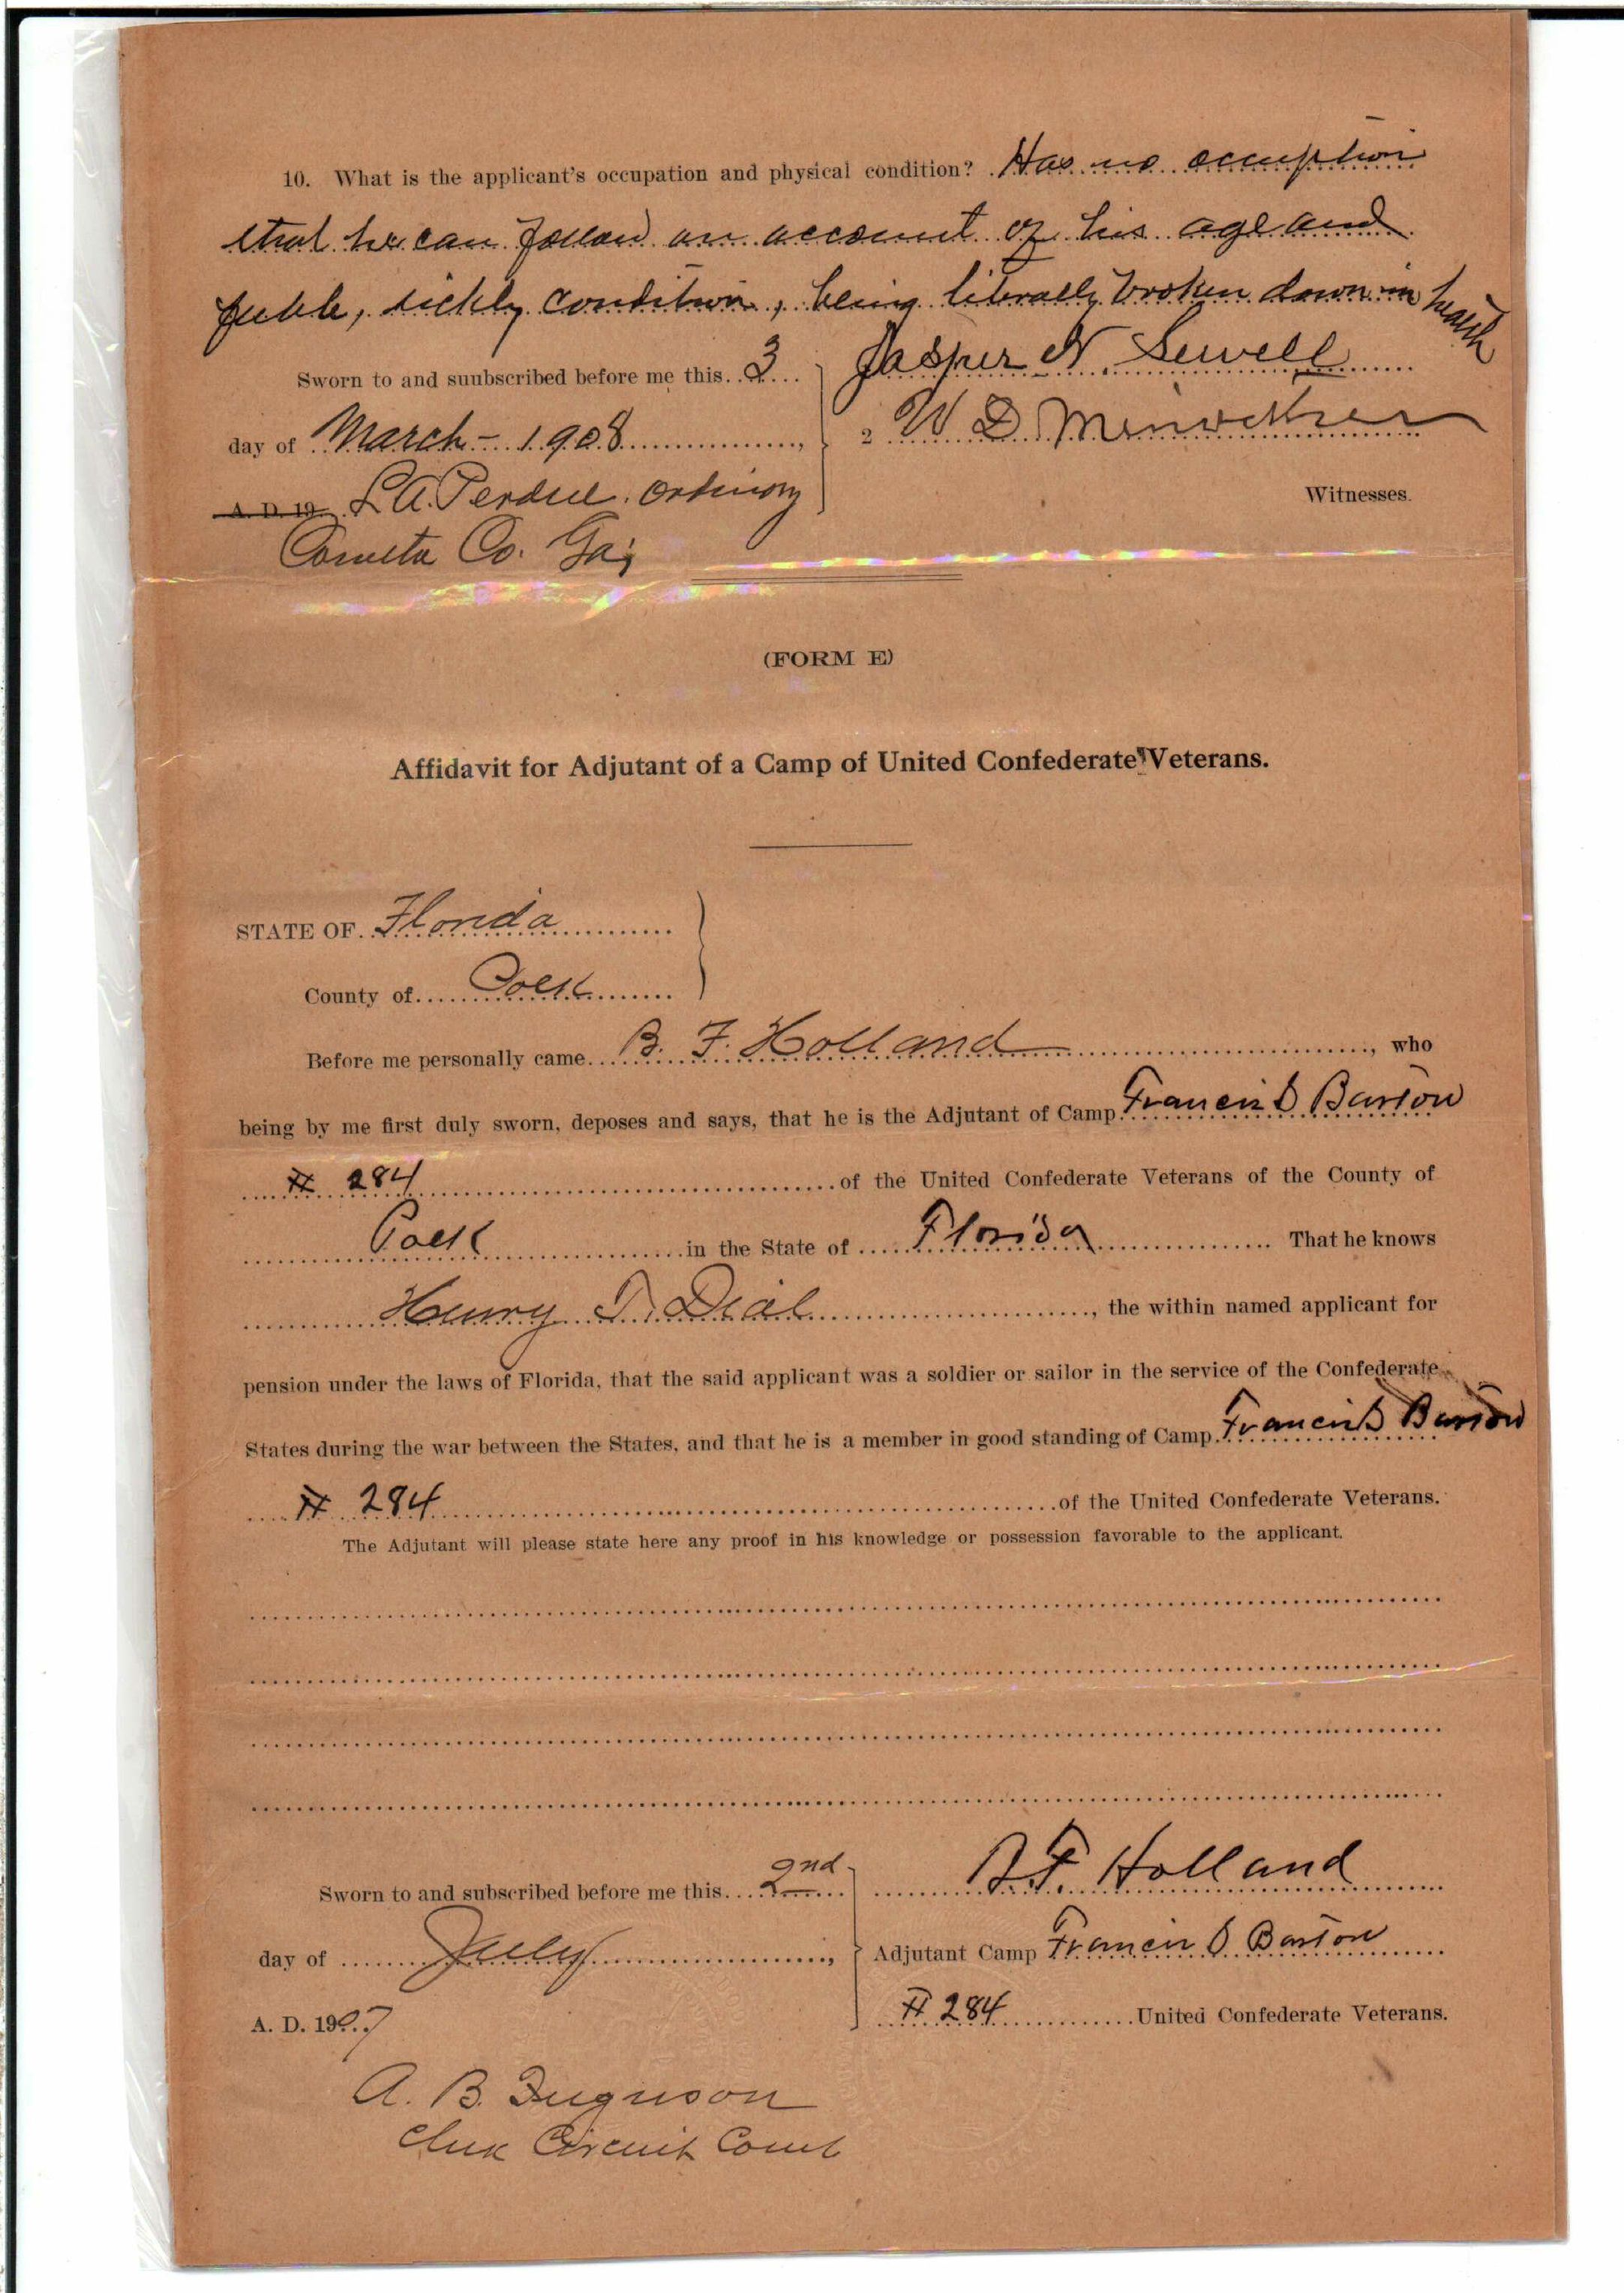 10. What is the applicant's occupation and physical condition? Has no occuption
that he can follow on account of his age and
feeble, sickly condition, being literally broken down in health
Sworn to and suubscribed before me this 3 Jasper N. Sewell
day of March - 1908, 2 W D
A. D. 19 L. A. Perdue. Ordinary Witnesses.
Coweta Co. Ga;
(FORM E)
Affidavit for Adjutant of a Camp of United Confederate Veterans.
STATE OF Florida
County of Polk
Before me personally came B. F. Holland, who
being by me first duly sworn, deposes and says, that he is the Adjutant of Camp Francis S Bartow
# 284 of the United Confederate Veterans of the County of
Polk in the State of Florida That he knows
Henry T. Dial, the within named applicant for
pension under the laws of Florida, that the said applicant was a soldier or sailor in the service of the Confederate
States during the war between the States, and that he is a member in good standing of Camp Francis S Bartow
# 284 of the United Confederate Veterans.
The Adjutant will please state here any proof in his knowledge or possession favorable to the applicant.
Sworn to and subscribed before me this 2nd B. F. Holland
day of July, Adjutant Camp Francis S Bartow
A. D. 1907 # 284 United Confederate Veterans.
A. B. Ferguson
Clerk Circuit Court